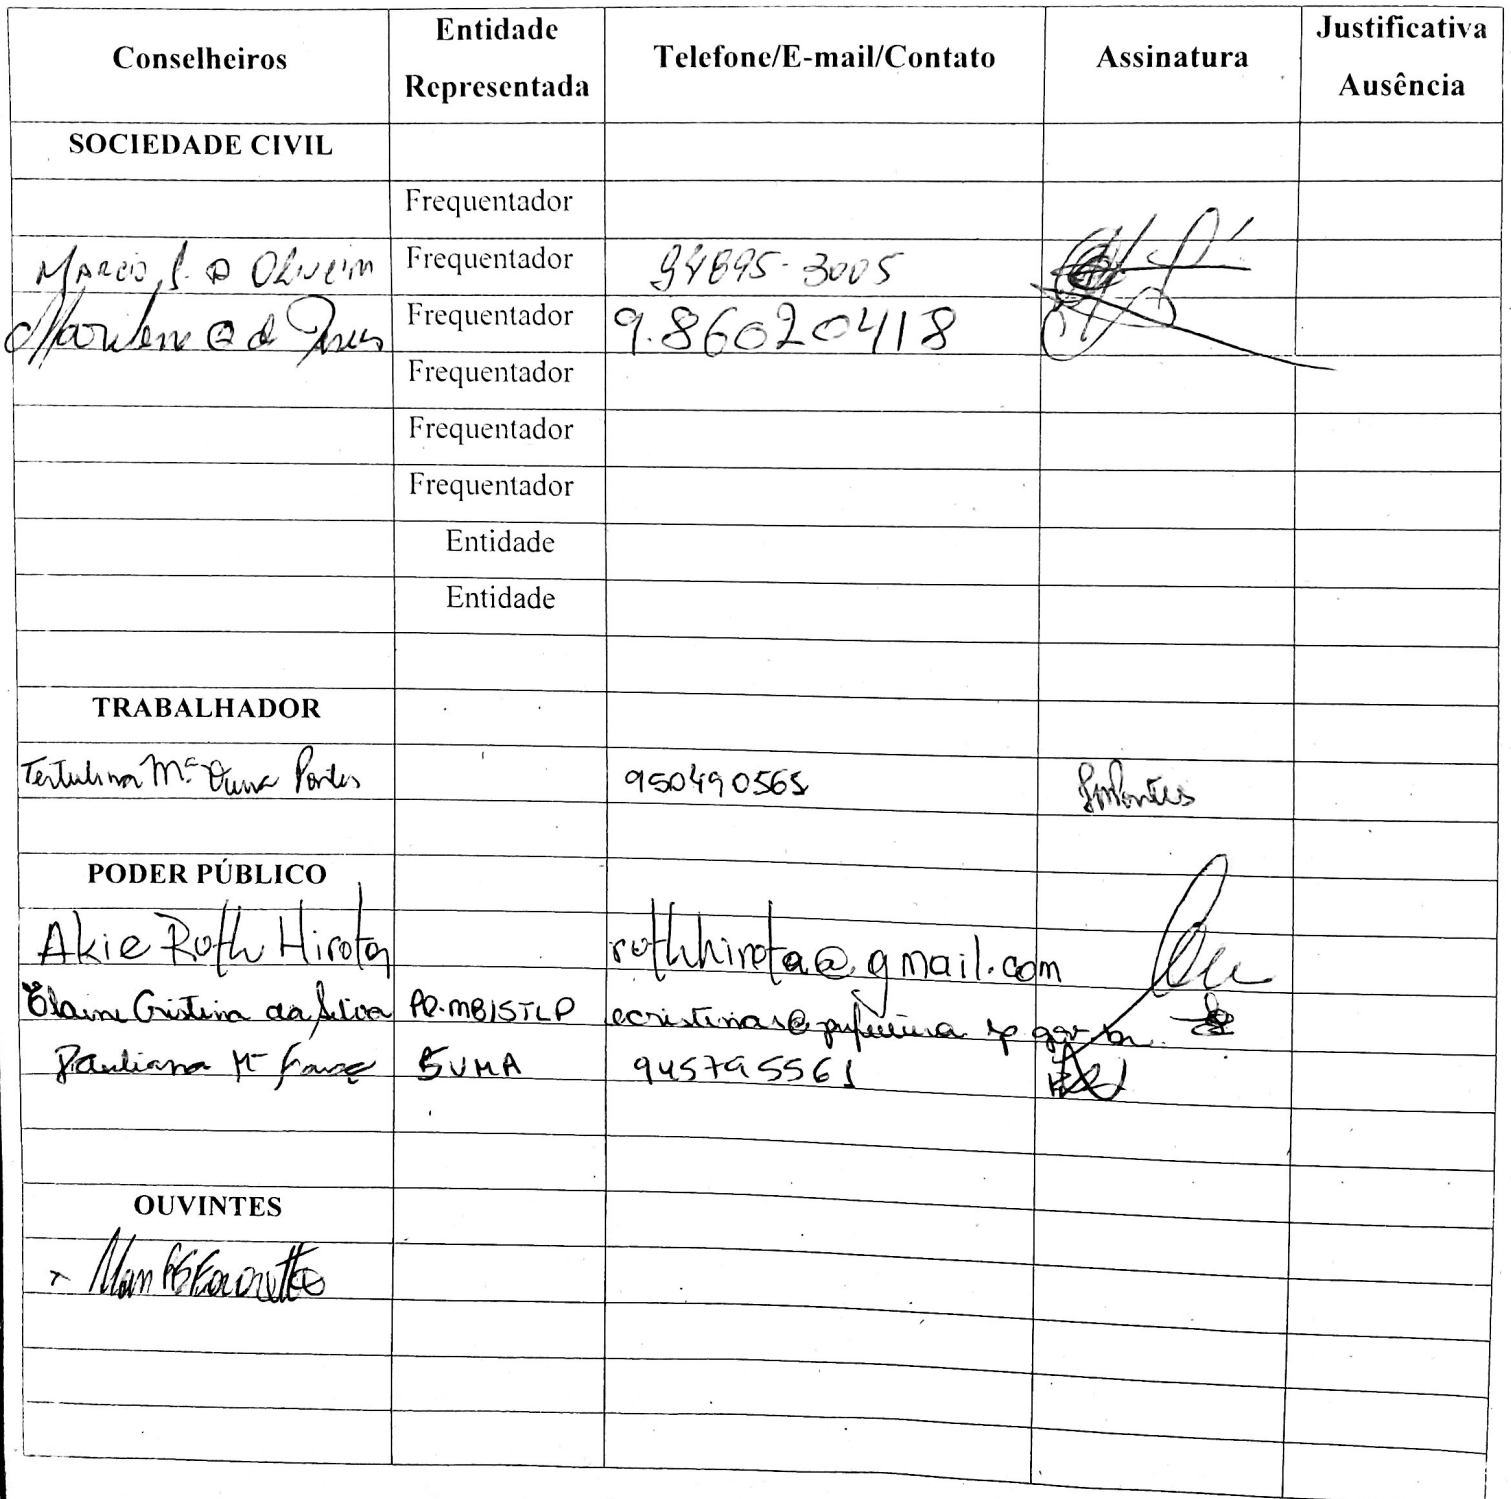 Conselheiros Entidade Representada Telefone/E-mail/Contato Assinatura Justificativa Ausência
SOCIEDADE CIVIL
Frequentador
Marcio S. D Oliveira Frequentador 94895-3005
Marilene de Jesus Frequentador 9.86020418
Frequentador
Frequentador
Frequentador
Entidade
Entidade
TRABALHADOR
Mª Pontes 950490565
PODER PÚBLICO
Akie Ruth Hirota ruthhirota@gmail.com
Elaine Cristina da Silva
Mª SUMA 945795561
OUVINTES